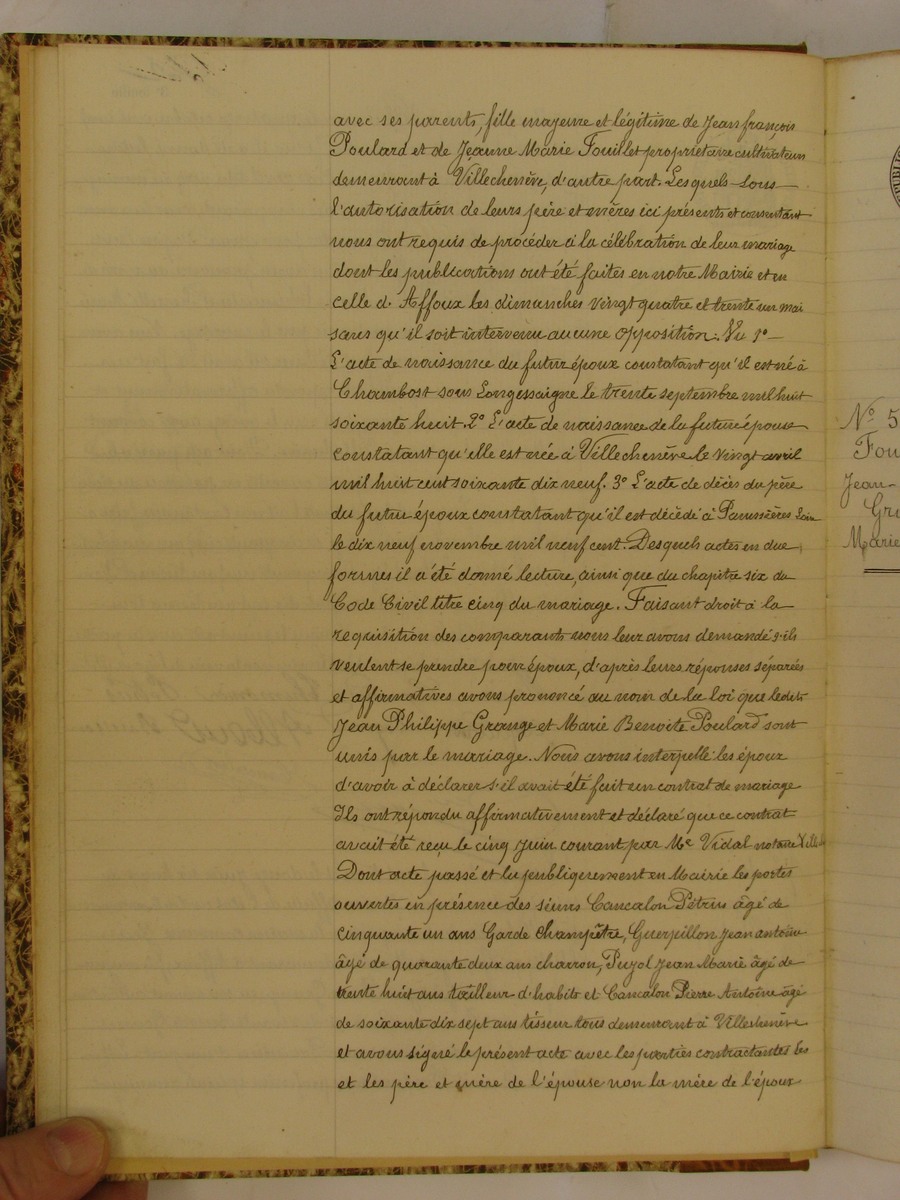 avec ses parents, fille majeure et légitime de Jean françois
Poulard et de Jeanne Marie Fouillet propriétaire cultivateurs
demeurant à Villechenève, d'autre part. Lesquels sous
l'autorisation de leurs père et mères ici présents et consentant
nous ont requis de procéder à la célébration de leur mariage
dont les publications ont été faites en notre Mairie et en
celle d. Affoux les dimanches vingt quatre et trente un mai
sans qu'il soit intervenu aucune opposition. Vu 1°
L'acte de naissance du futur époux constatant qu'il est né à
Chambost sous Longessaigne le trente septembre mil huit
soixante huit. 2° L'acte de naissance de la future épouse
constatant qu'elle est née à Villechenève le vingt avril
mil huit cent soixante dix neuf. 3° L'acte de décès du père
du futur époux constatant qu'il est décédé à Panissières Loire
le dix neuf novembre mil neuf cent. Desquels actes en due
formes il a été donné lecture, ainsi que du chapitre six du
Code Civil titre cinq du mariage. Faisant droit à la
requisition des comparants nous leur avons demandé s'ils
veulent se prendre pour époux, d'après leurs réponses séparées
et affirmatives avons prononcé au nom de la loi que lesdits
Jean Philippe Grange et Marie Benoite Poulard sont
unis par le mariage. Nous avons interpellé les époux
d'avoir à déclarer s'il avait été fait un contrat de mariage
Ils ont répondu affirmativement et déclaré que ce contrat
avait été reçu le cinq Juin courant par Me Vidal notaire
Dont acte passé et lu publiquement en Mairie les portes
ouvertes en présence des sieurs Cancalon Pétrus âgé de
cinquante un ans Garde champêtre, Guerpillon Jean antoine
âgé de quarante deux ans charron, Pujol Jean Marie âgé de
trente huit ans tailleur d'habits et Cancalon Pierre Antoine âgé
de soixante dix sept ans tisseur tous demeurant à Villechenève
et avons signé le présent acte avec les parties contractantes les
et les père et mère de l'épouse non la mère de l'époux
N° 5
Fou
Jean-
Gri
Marie